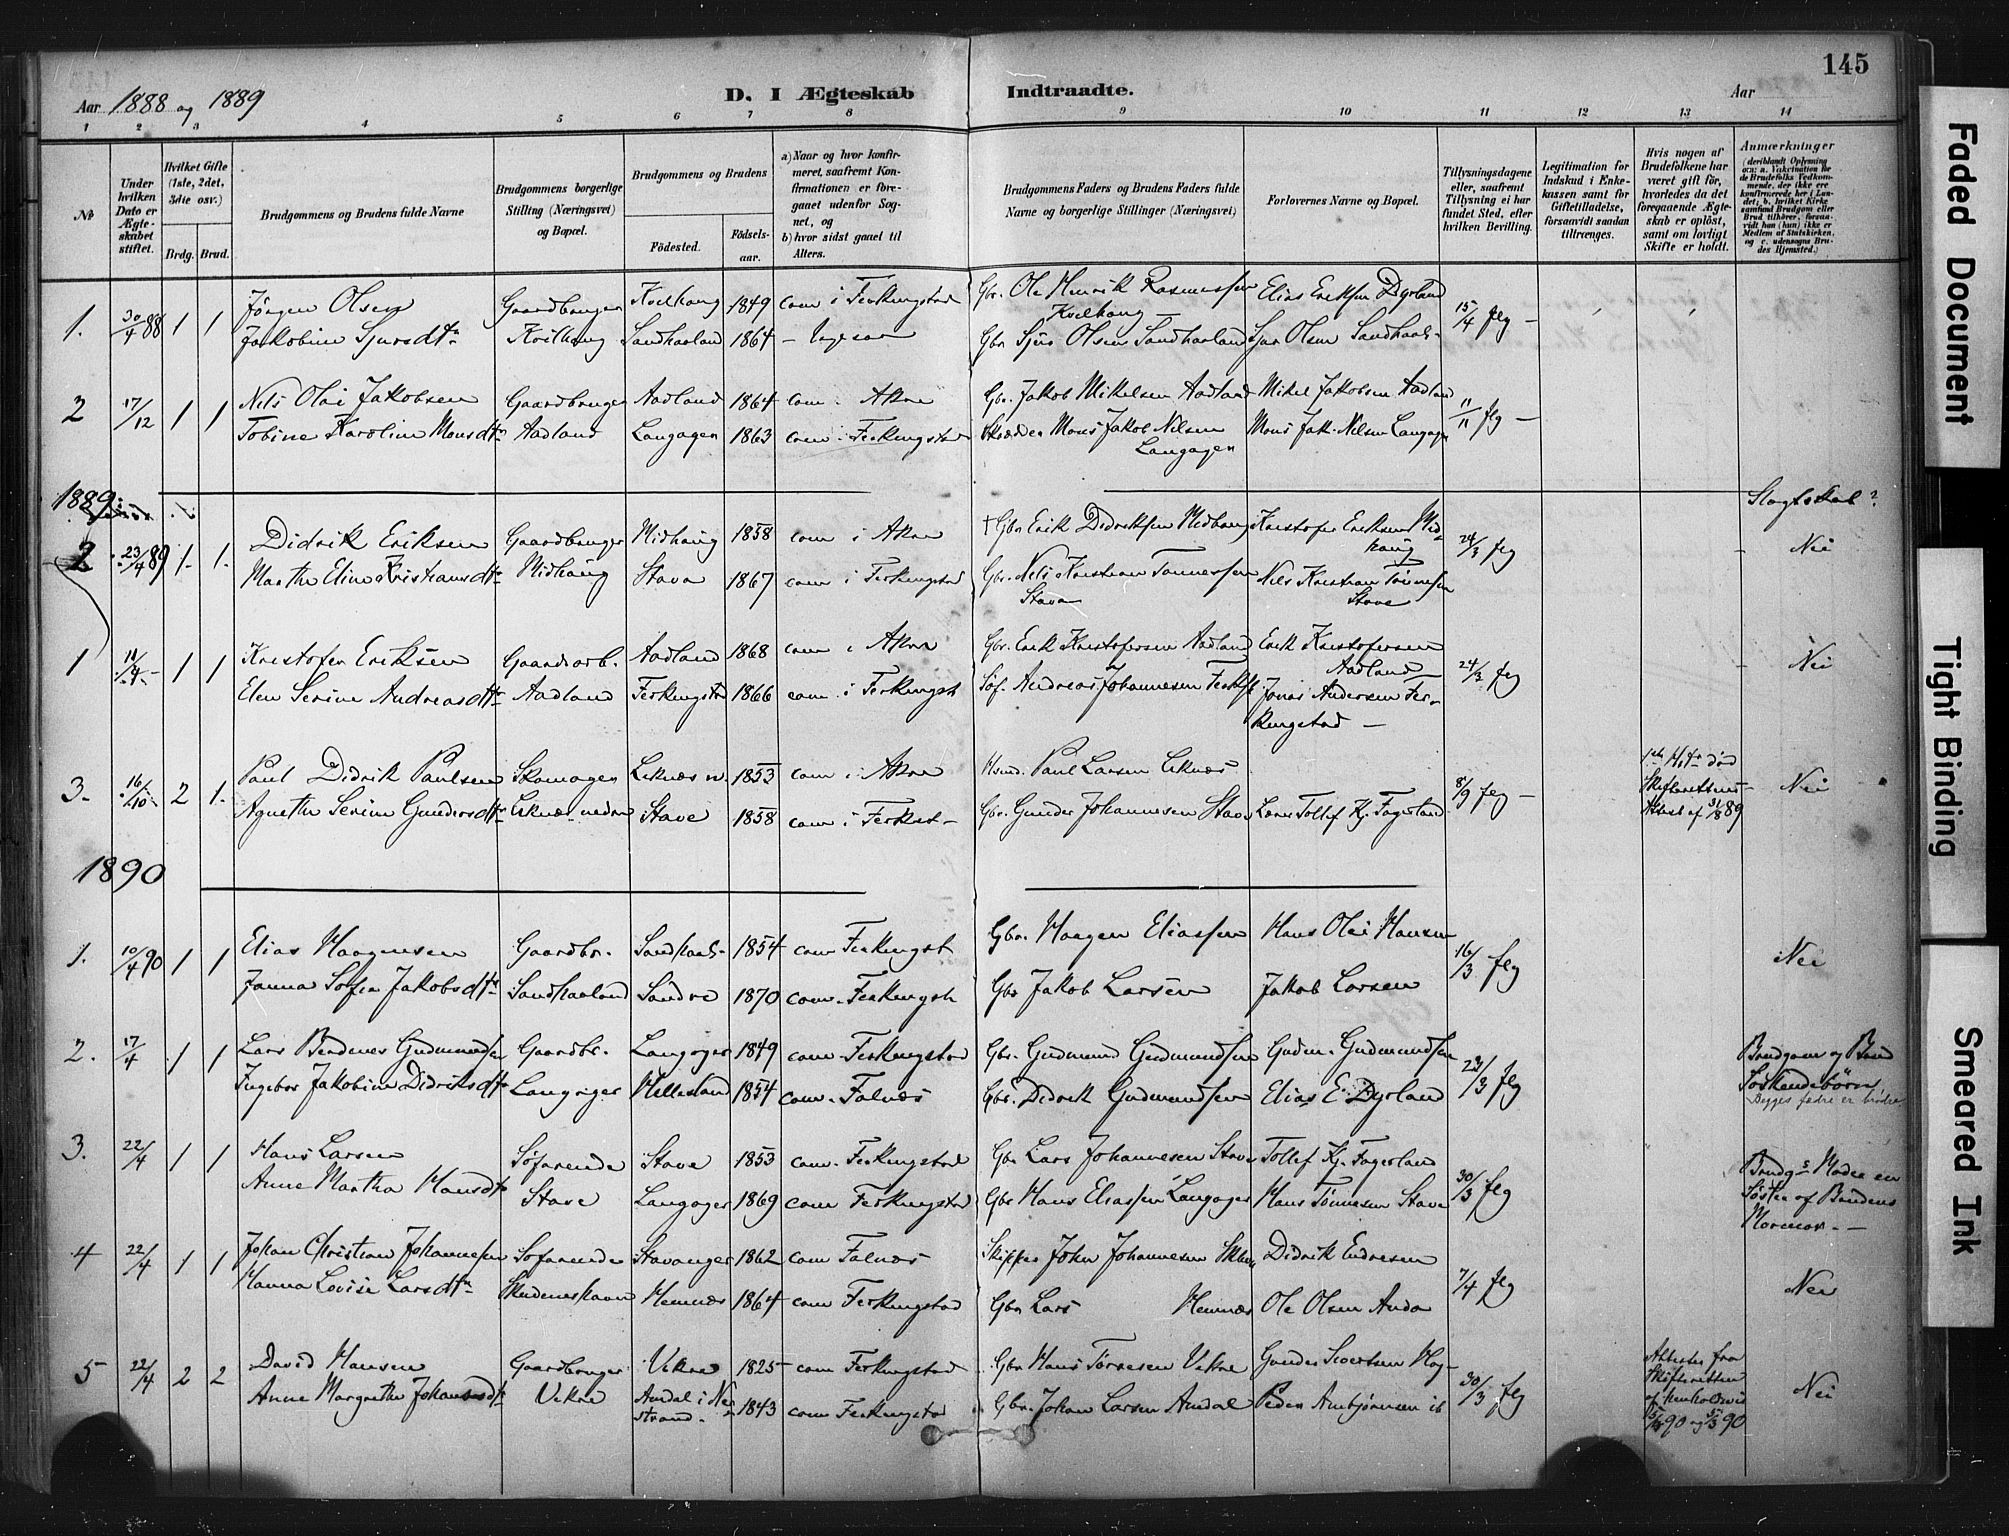 145
Aar 1888 og 1889
D. I Ægteskab Indtraadte.
Aar
1 2 3 4 5 6 7 8 9 10 11 12 13 14
No
Under hvilken Dato er Ægteskabet stiftet.
Hvilket Gifte (1ste, 2det, 3die osv.)
Brdg. Brud.
Brudgommens og Brudens fulde Navne
Brudgommens borgerlige Stilling (Næringsvei) og Bopæl.
Brudgommens og Brudens
Fødested.
Fødsels-aar.
a) Naar og hvor konfirmeret, saafremt Konfirmationen er foregaaet udenfor Sognet, og
b) hvor sidst gaaet til Alters.
Brudgommens Faders og Brudens Faders fulde Navne og borgerlige Stillinger (Næringsvei)
Forlovernes Navne og Bopæl.
Tillysningsdagene eller, saafremt Tillysning ei har fundet Sted, efter hvilken Bevilling.
Legitimation for Indskud i Enkekassen samt for Giftetilladelse, forsaavidt saadan tiltrænges.
Hvis nogen af Brudefolkene har været gift før, hvorledes da det foregaaende Ægteskab er opløst, samt om lovligt Skifte er holdt.
Anmærkninger
1. 30/4 88 1 1 Jørgen Olsen Gaardbruger Kvilhaug 1849 com i Ferkingstad Gbr. Ole Henrik Rasmussen Kvilhaug Elias Eriksen Dyrland 15/4 flg
Jakobine Sjursdtr Kvilhaug Sandhaaland 1864 Gbr Sjur Olsen Sandhaaland Sjur Olsen Sandhaal-
2 17/12 1 1 Nils Olai Jakobsen Gaardbruger Aadland 1864 com. Akra Gbr. Jakob Mikelsen Aadland Mikel Jakobsen Aadland 11/11 flg
Tobine Karoline Monsdtr Aadland Langager 1863 com i Ferkingstad Skrædder Mons Jakob Nilsen Langager Mons Jak. Nilsen Langager
1889
Slagtskab?
2 23/4 89 1 1 Didrik Eriksen Gaardbruger Midhaug 1858 com i Akra † Gbr Erik Didriksen Midhaug Kristofer Eriksen Midhaug 24/3 flg Nei
Marthe Eline Kristiansdtr Midhaug Stava 1867 com i Ferkingstad Gbr. Nils Kristian Tønnessen Stava Nils Kristian Tønnesen Stave
1 11/4 1 1 Kristofer Eriksen Gaardarb. Aadland 1868 com i Akra Gbr. Erik Kristofersen Aadland Erik Kristofersen Aadland 24/3 flg Nei
Elen Serine Andreasdtr Aadland Ferkingstad 1866 com. i Ferkingst Søf. Andreas Johannesen Ferkst Jonas Andersen Ferkingstad
3. 16/10 2 1 Paul Didrik Paulsen Skomager Liknæs n. 1853 com i Akra Husmd. Paul Larsen Liknæs 8/9 flg Nei
Agnethe Serine Gundersdtr Liknæs nedre Stave 1858 com i Ferkst- Gbr. Gunder Johannesen Stave Lærer Tollef Kj. Fagerland
1ste Hstr død Skifterettens Attest af 31/8 89
1890
1. 10/4 90 1 1 Elias Haagensen Gaardbr. Sandhaal- 1854 com Ferkingst Gbr. Haagen Eliassen Hans Olai Hansen 16/3 flg Nei
Janna Sofie Jakobsdtr Sandhaaland Sandve 1870 com. Ferkingst Gbr Jakob Larsen Jakob Larsen
2. 17/4 1 1 Lars Berdines Gudmundsen Gaardbr. Langager 1849 com. Ferkingstad Gbr. Gudmund Gudmundsen Gudm. Gudmundsen 23/3 flg
Ingebor Jakobine Didriksdtr Langager Hillesland 1854 com. Falnæs Gbr. Didrik Gudmundsen Elias E. Dyrland
Brudgom og Brud Søskendebørn, Begges fædre er brødre.
3. 22/4 1 1 Hans Larsen Søfarende Stave 1853 com. Ferkingstad Gbr Lars Johannesen Stave Tollef Kj. Fagerland 30/3 flg
Anne Martha Hansdtr Stave Langager 1869 com Ferkingstad Gbr Hans Eliassen Langager Hans Tønnesen Stave
Brudg-s Moder en Søster af Brudens Mormor.
4 22/4 1 1 Johan Christian Johannesen Søfarende Stavanger 1862 com Falnæs Skipper John Johannesen Didrik Endresen 7/4 flg Nei
Hanna Lovise Larsdtr Skudeneshavn Hemnæs 1864 com Ferkingstad Gbr Lars Hemnæs Ole Olsen Anda
5 22/4 2 2 David Hansen Gaardbruger Vikre 1825 com Ferkingstad Gbr Hans Tørresen Vikre Gunder Sivertsen Hag- 30/3 flg Nei
Anne Margrethe Johansdtr Vikre Amdal i Nerstrand. 1843 com Ferkingstad Gbr. Johan Larsen Amdal Peder Arnbjørnsen ib
Attester fra Skifteretten
Faded Document
Tight Binding
Smeared Ink